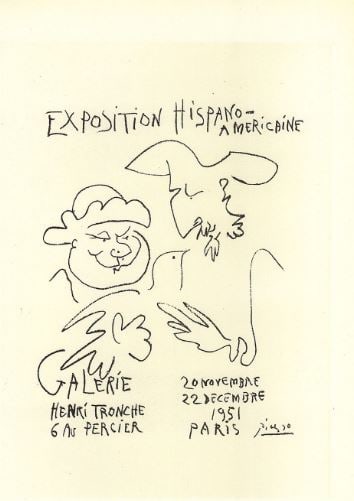 EXPOSITION HISPANO-
AMERICAINE
GALERIE
HENRI TRONCHE
6 AV PERCIER
20 NOVEMBRE
22 DECEMBRE
1951
PARIS
Picasso